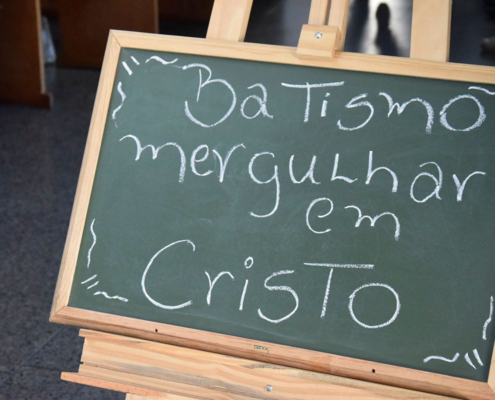 Batismo
mergulhar
em
Cristo